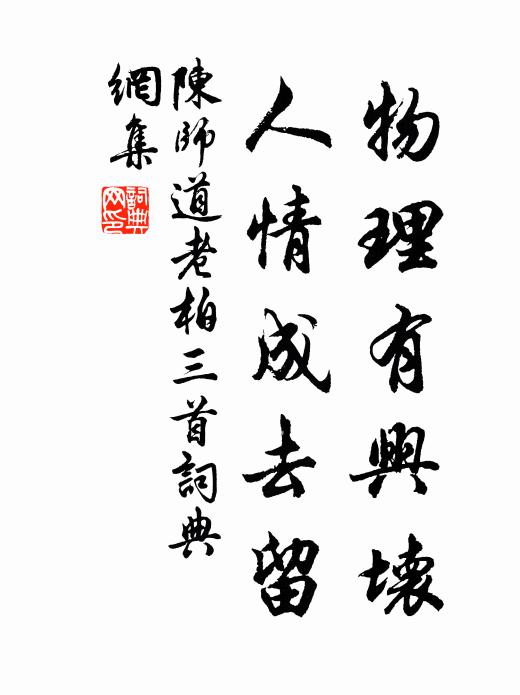 物理有興壞
人情成去留
陳師道老柏三首詞典
網集
詞典
网印